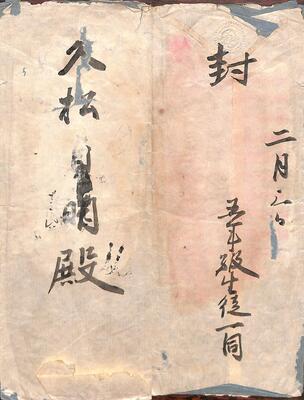 久松
殿
封
二月三日
五年級生徒一同